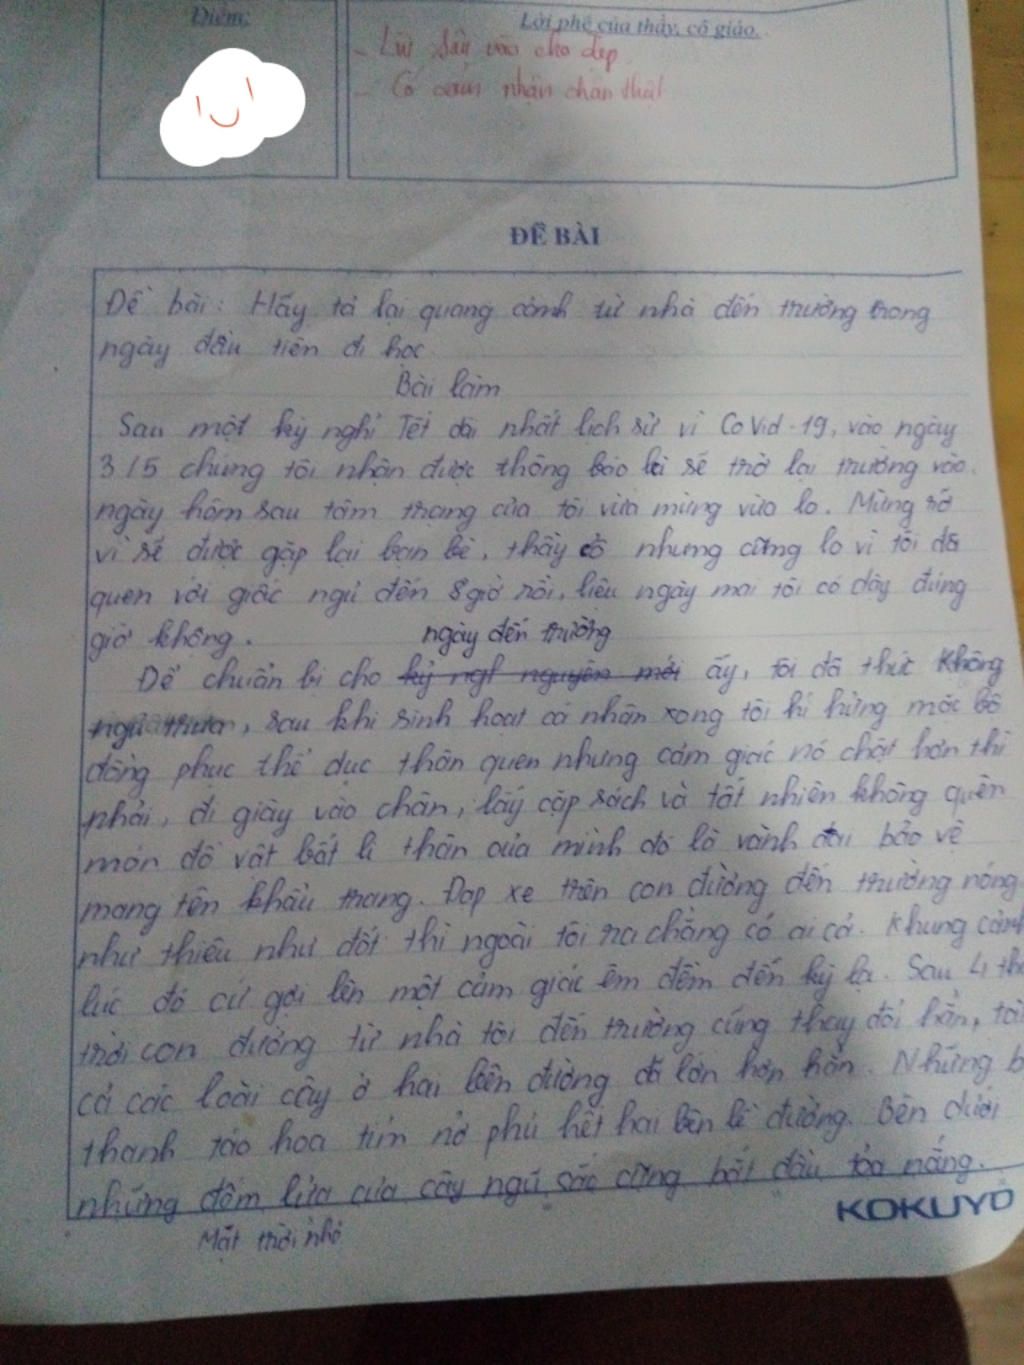 Điểm:
Lời phê của thầy, cô giáo.
- Lùi sâu vào cho đẹp
- Có cảm nhận chân thật
ĐỀ BÀI
Đề bài: Hãy tả lại quang cảnh từ nhà đến trường trong
ngày đầu tiên đi học
Bài làm
Sau một kỳ nghỉ Tết dài nhất lịch sử vì CoVid-19, vào ngày
3/5 chúng tôi nhận được thông báo là sẽ trở lại trường vào
ngày hôm sau tâm trạng của tôi vừa mừng vừa lo. Mừng rỡ
vì sẽ được gặp lại bạn bè, thầy cô nhưng cũng lo vì tôi đã
quen với giấc ngủ đến 8 giờ rồi, liệu ngày mai tôi có dậy đúng
giờ không.
ngày đến trường
Để chuẩn bị cho kỷ nguyên mới ấy, tôi đã thức không
ngủ, sau khi sinh hoạt cá nhân xong tôi hí hửng mặc bộ
đồng phục thể dục thân quen nhưng cảm giác nó chật hơn thì
phải, đi giày vào chân, lấy cặp sách và tất nhiên không quên
món đồ vật bất li thân của mình đó là vành đai bảo vệ
mang tên khẩu trang. Đạp xe trên con đường đến trường nóng
như thiêu như đốt thì ngoài tôi ra chẳng có ai cả. Khung cảnh
lúc đó cứ gợi lên một cảm giác êm đềm đến kỳ lạ. Sau 4
trời con đường từ nhà tôi đến trường cũng thay đổi hẳn,
cả các loài cây ở hai bên đường đã lớn hơn hẳn. Những
thanh táo hoa tím nở phủ hết hai bên lề đường. Bên dưới
những đốm lửa của cây ngũ sắc cũng bắt đầu tỏa nắng.
Mặt trời nhỏ
KOKUYO